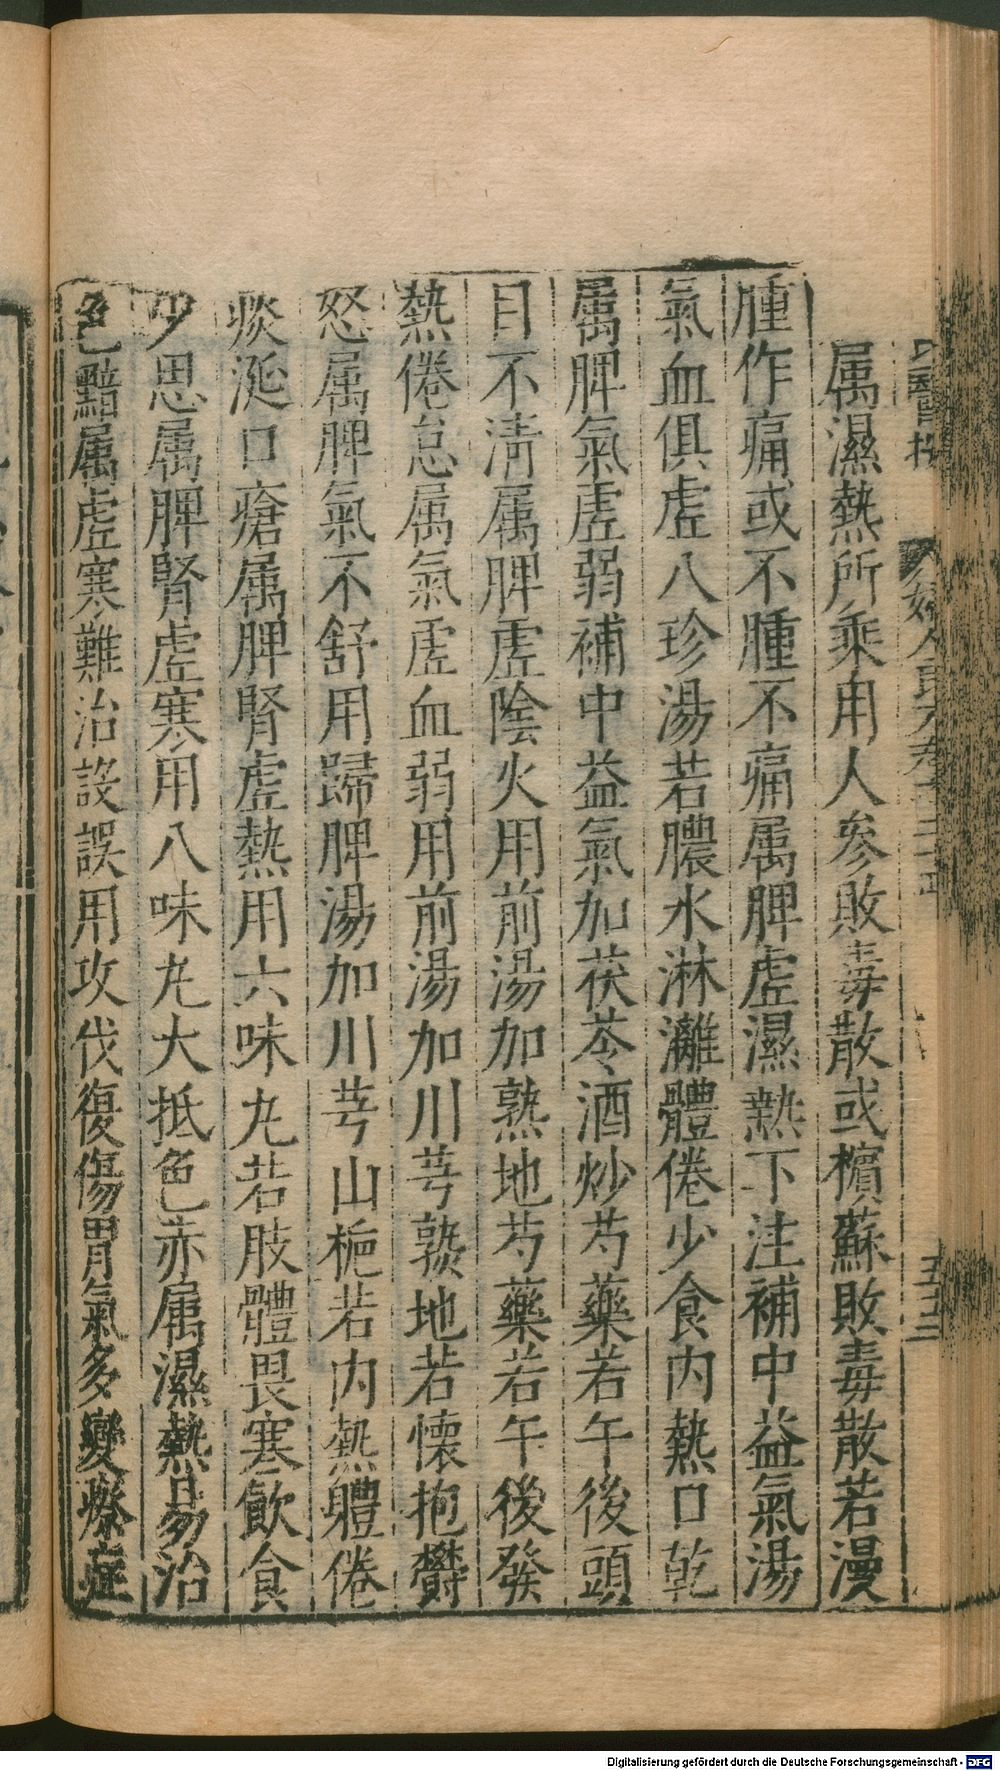 属濕熱所乘用人參敗毒散或檳蘇敗毒散若漫
腫作痛或不腫不痛属脾虛濕熱下注補中益氣湯
氣血俱虛八珍湯若膿水淋灕體倦少食內熱口乾
属脾氣虛弱補中益氣加茯苓酒炒芍藥若午後頭
目不清属脾虛陰火用前湯加熟地芍藥若午後發
熱倦怠属氣虛血弱用前湯加川芎熟地若懷抱欝
怒属脾氣不舒用歸脾湯加川芎山梔若內熱軆倦
痰涎口瘡属脾腎虛熱用六味丸若肢體畏寒飲食
少思属脾腎虛寒用八味丸大抵色赤属濕熱易治
色黯属虛寒難治設誤用攻伐復傷胃氣多變療症
Digitalisierung gefördert durch die Deutsche Forschungsgemeinschaft - DFG